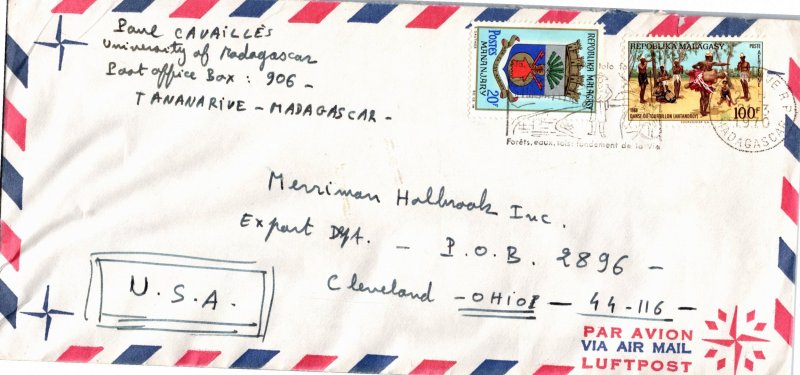 Paul CAVAILLÈS
University of Madagascar
Post office Box : 906 -
TANANARIVE - MADAGASCAR -
REPUBLIK MALAGASY
POSTES
MANANJARY
20F
REPOBLIKA MALAGASY
POSTE
100F
DANSE DU TOURBILLON (ANTANDROY)
1970
MADAGASCAR
Forêts, eaux, sols: fondement de la Vie
Merriman Holbrook Inc.
Export Dpt. - P.O.B. 2896 -
Cleveland - OHIO - 44-116 -
U.S.A.
PAR AVION
VIA AIR MAIL
LUFTPOST